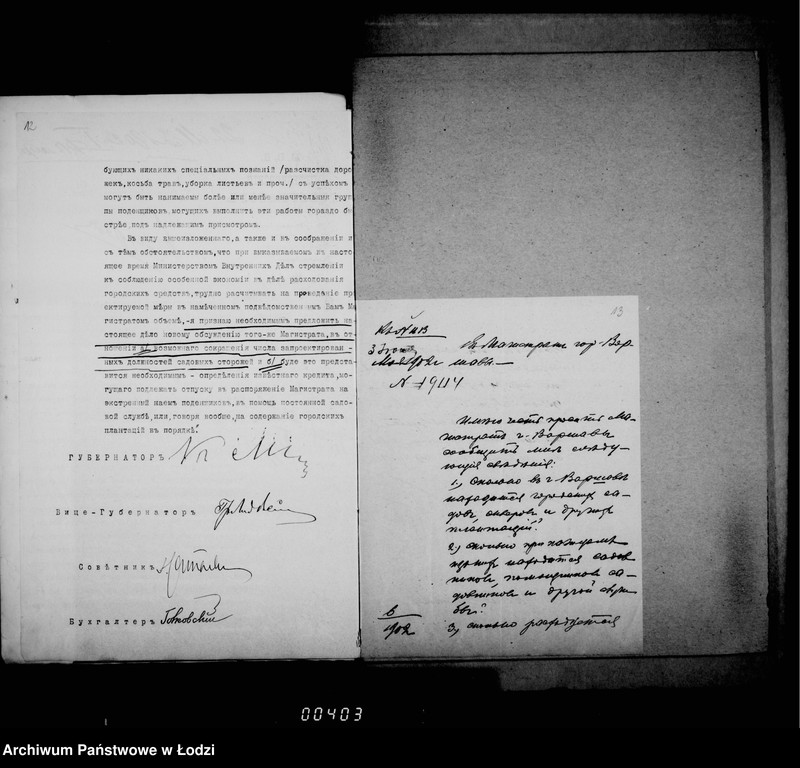 12
бующихъ никакихъ спецiальныхъ познанiй /расчистка доро
жекъ, косьба травъ, уборка листьевъ и проч./ съ успѣхомъ
могутъ быть нанимаемы болѣе или менѣе значительныя груп
пы поденщиковъ, могущихъ выполнить эти работы гораздо бы
стрѣе, подъ надлежащимъ присмотромъ.
Въ виду вышеизложеннаго, а также и въ соображенiи
съ тѣмъ обстоятельствомъ, что при
ящее время Министерствомъ Внутреннихъ Дѣлъ стремленiи
къ соблюденiю особенной экономiи въ дѣлѣ расходованiя
городскихъ средствъ, трудно расчитывать на проведенiе пр
ектируемой мѣры въ намѣченномъ подвѣдомственнымъ Вамъ Ма
гистратомъ объемѣ, -я признаю необходимымъ предложить на
стоящее дѣло новому обсужденiю того-же Магистрата, въ от
ношенiи а/ возможнаго сокращенiя числа запроектирован -
ныхъ должностей садовыхъ сторожей и б/ буде это предста-
вится необходимымъ - опредѣленiя извѣстнаго кредита, мо-
гущаго подлежать отпуску въ распоряженiе Магистрата на
экстренный наемъ поденщиковъ, въ помощь постоянной садо-
вой службѣ, или, говоря вообще, на содержанiе городскихъ
плантацiй въ порядкѣ.
ГУБЕРНАТОРЪ
Вице-Губернаторъ
Совѣтникъ
Бухгалтеръ
13
Въ Магистратъ гор. Вар
шавы.
N 19114
Имѣю честь просить Ма-
гистратъ г. Варшавы
сообщить мнѣ слѣду-
ющiя свѣдѣнiя:
1) сколько въ г. Варшавѣ
находится городскихъ са-
довъ, скверовъ и другихъ
плантацiй?
2) сколько при каждомъ
находится садов
никовъ, помощниковъ са-
довниковъ и другой служ-
бы?
3) сколько расходуется
00403
Archiwum Państwowe w Łodzi